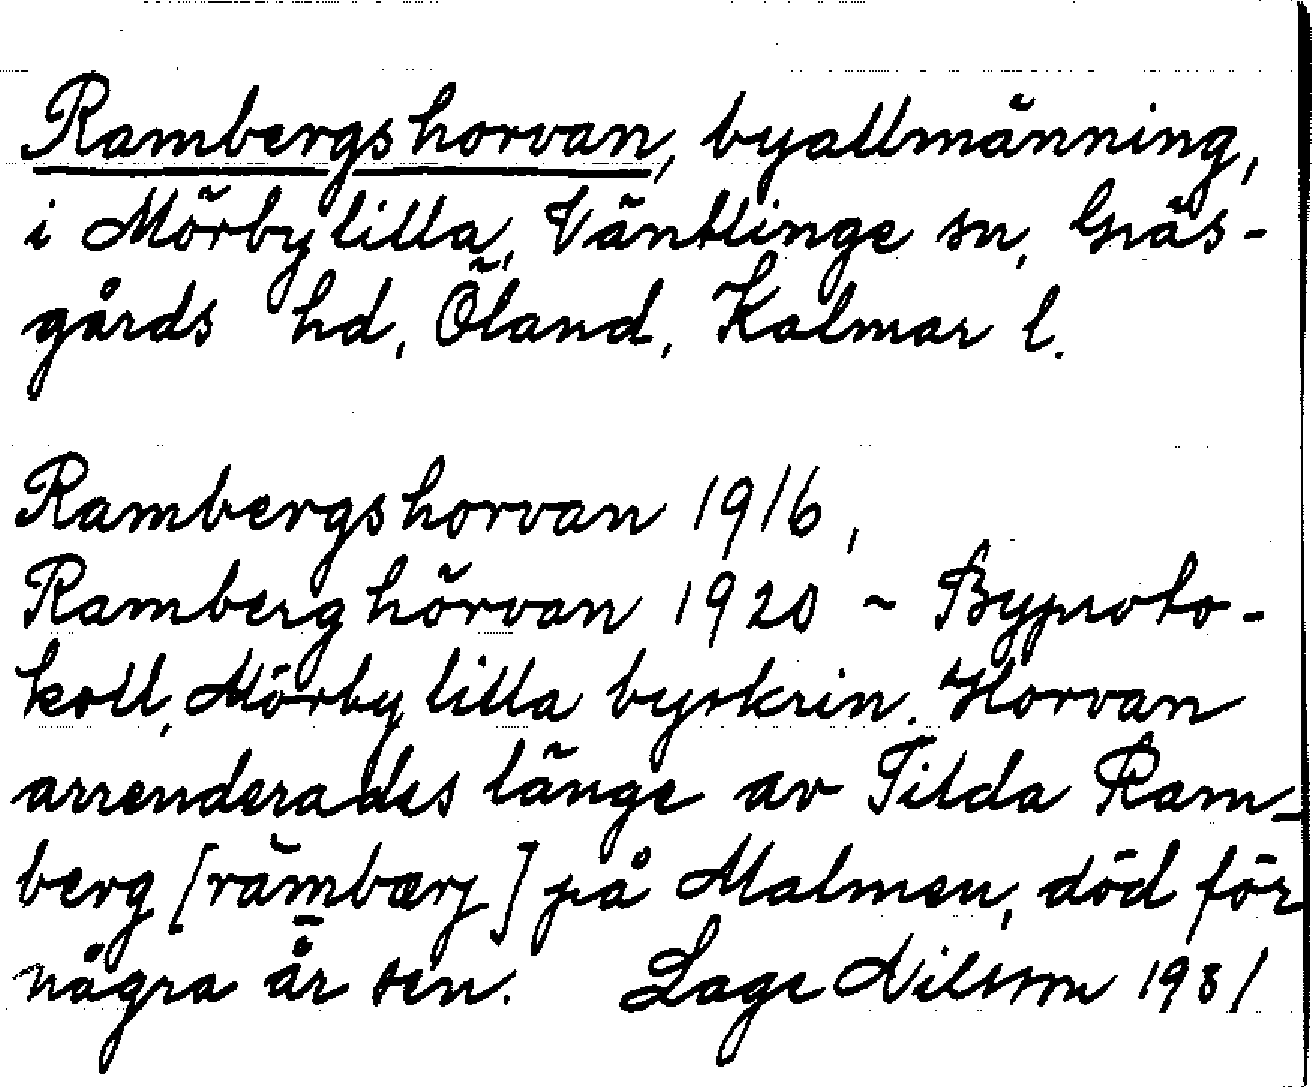 Rambergshorvan, byallmänning,
i Mörbylilla, Väntlinge sn, Gräs-
gårds hd, Öland, Kalmar l.
Rambergshorvan 1916,
Ramberghörvan 1920 ~ Byproto-
koll, Mörby lilla byskrin. Horvan
arrenderades länge av Tilda Ram-
berg [rämbærj] på Malmen, död för
några år sen. Lage Nilsson 1931